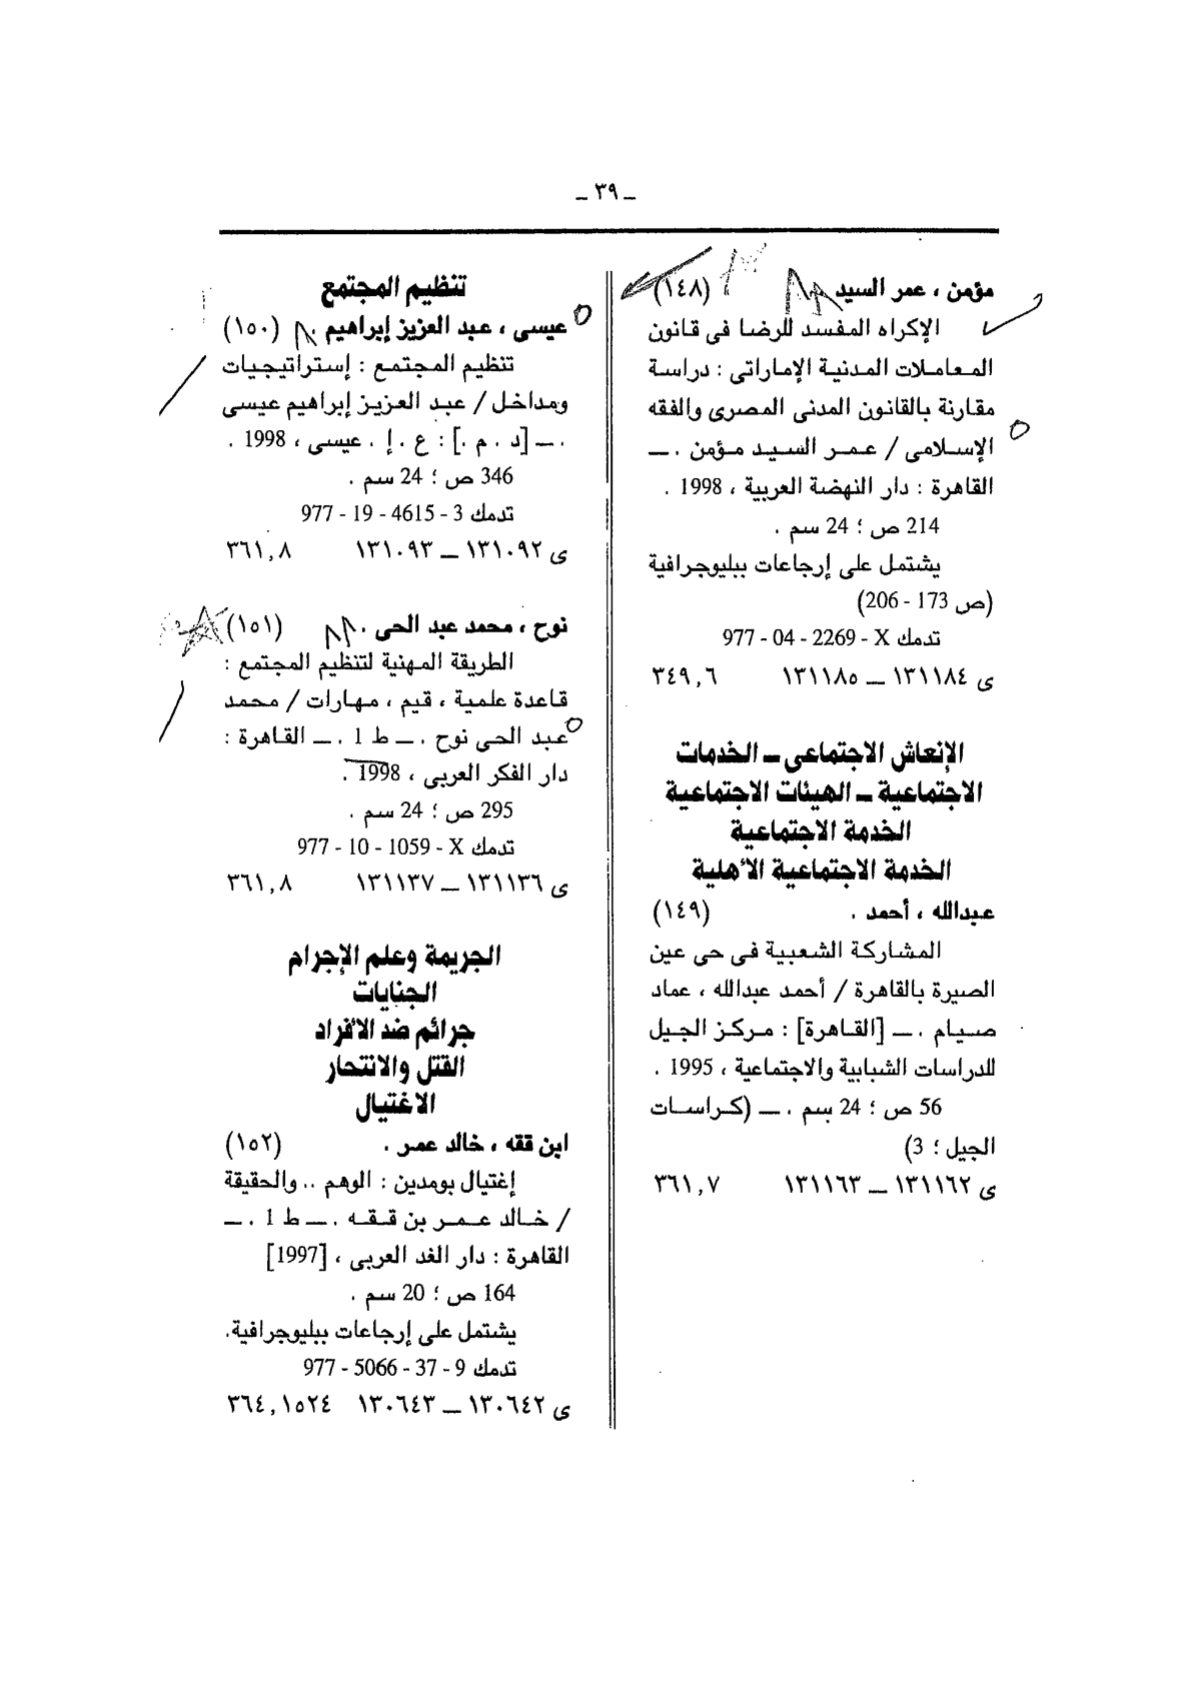 ـ ٣٩ ـ
مؤمن ، عمر السيد (١٤٨)
الإكراه المفسد للرضا فى قانون
المعاملات المدنية الإماراتى : دراسة
مقارنة بالقانون المدنى المصرى والفقه
الإسلامى / عمر السيد مؤمن . ــ
القاهرة : دار النهضة العربية ، 1998 .
214 ص ؛ 24 سم .
يشتمل على إرجاعات ببليوجرافية
(ص 173 - 206)
تدمك X - 2269 - 04 - 977
ى ١٣١١٨٤ ــ ١٣١١٨٥ ٣٤٩,٦
الإنعاش الاجتماعى ــ الخدمات
الاجتماعية ــ الهيئات الاجتماعية
الخدمة الاجتماعية
الخدمة الاجتماعية الأهلية
عبدالله ، أحمد . (١٤٩)
المشاركة الشعبية فى حى عين
الصيرة بالقاهرة / أحمد عبدالله ، عماد
صيام . ــ [القاهرة] : مركز الجيل
للدراسات الشبابية والاجتماعية ، 1995 .
56 ص ؛ 24 سم . ــ (كراسات
الجيل ؛ 3)
ى ١٣١١٦٢ ــ ١٣١١٦٣ ٣٦١,٧
تنظيم المجتمع
عيسى ، عبد العزيز إبراهيم . (١٥٠)
تنظيم المجتمع : إستراتيجيات
ومداخل / عبد العزيز إبراهيم عيسى
. ــ [د . م .] : ع . إ . عيسى ، 1998 .
346 ص ؛ 24 سم .
تدمك 3 - 4615 - 19 - 977
ى ١٣١٠٩٢ ــ ١٣١٠٩٣ ٣٦١,٨
نوح ، محمد عبد الحى . (١٥١)
الطريقة المهنية لتنظيم المجتمع :
قاعدة علمية ، قيم ، مهارات / محمد
عبد الحى نوح . ــ ط 1 . ــ القاهرة :
دار الفكر العربى ، 1998 .
295 ص ؛ 24 سم .
تدمك X - 1059 - 10 - 977
ى ١٣١١٣٦ ــ ١٣١١٣٧ ٣٦١,٨
الجريمة وعلم الإجرام
الجنايات
جرائم ضد الأفراد
القتل والانتحار
الاغتيال
ابن ققه ، خالد عمر . (١٥٢)
إغتيال بومدين : الوهم .. والحقيقة
/ خالد عمر بن ققه . ــ ط 1 . ــ
القاهرة : دار الغد العربى ، [1997]
164 ص ؛ 20 سم .
يشتمل على إرجاعات ببليوجرافية.
تدمك 9 - 37 - 5066 - 977
ى ١٣٠٦٤٢ ــ ١٣٠٦٤٣ ٣٦٤,١٥٢٤